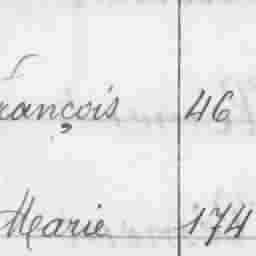 rançois 46
Marie 174